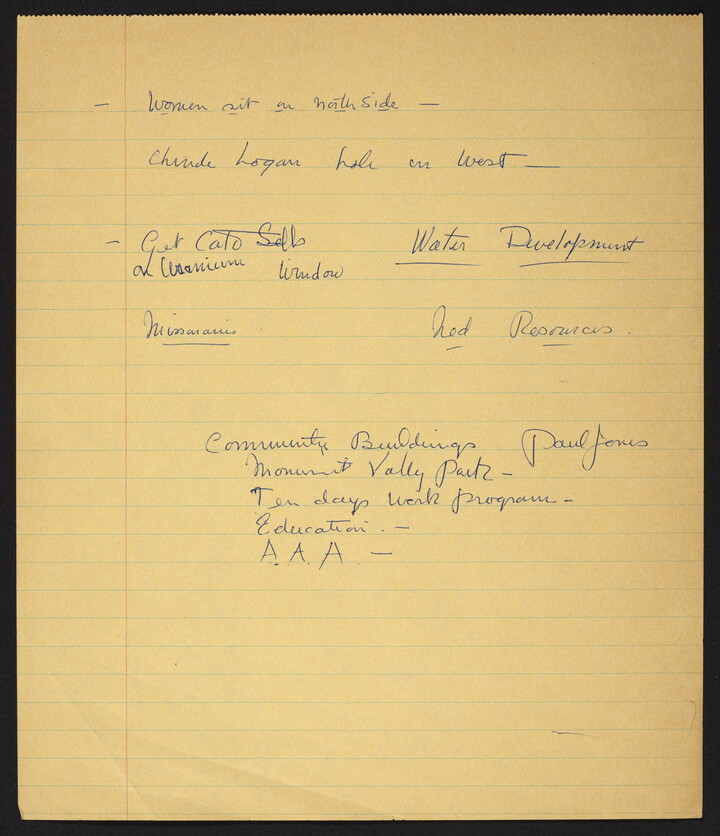 — Women sit on north side —
Chinde hogan hole on West —
— Get Cato Sells Water Development
on Uranium Window
Missionaries Ned Resources.
Community Buildings Paul Jones
Monument Vally Park —
Ten days work program —
Education. —
A. A. A —